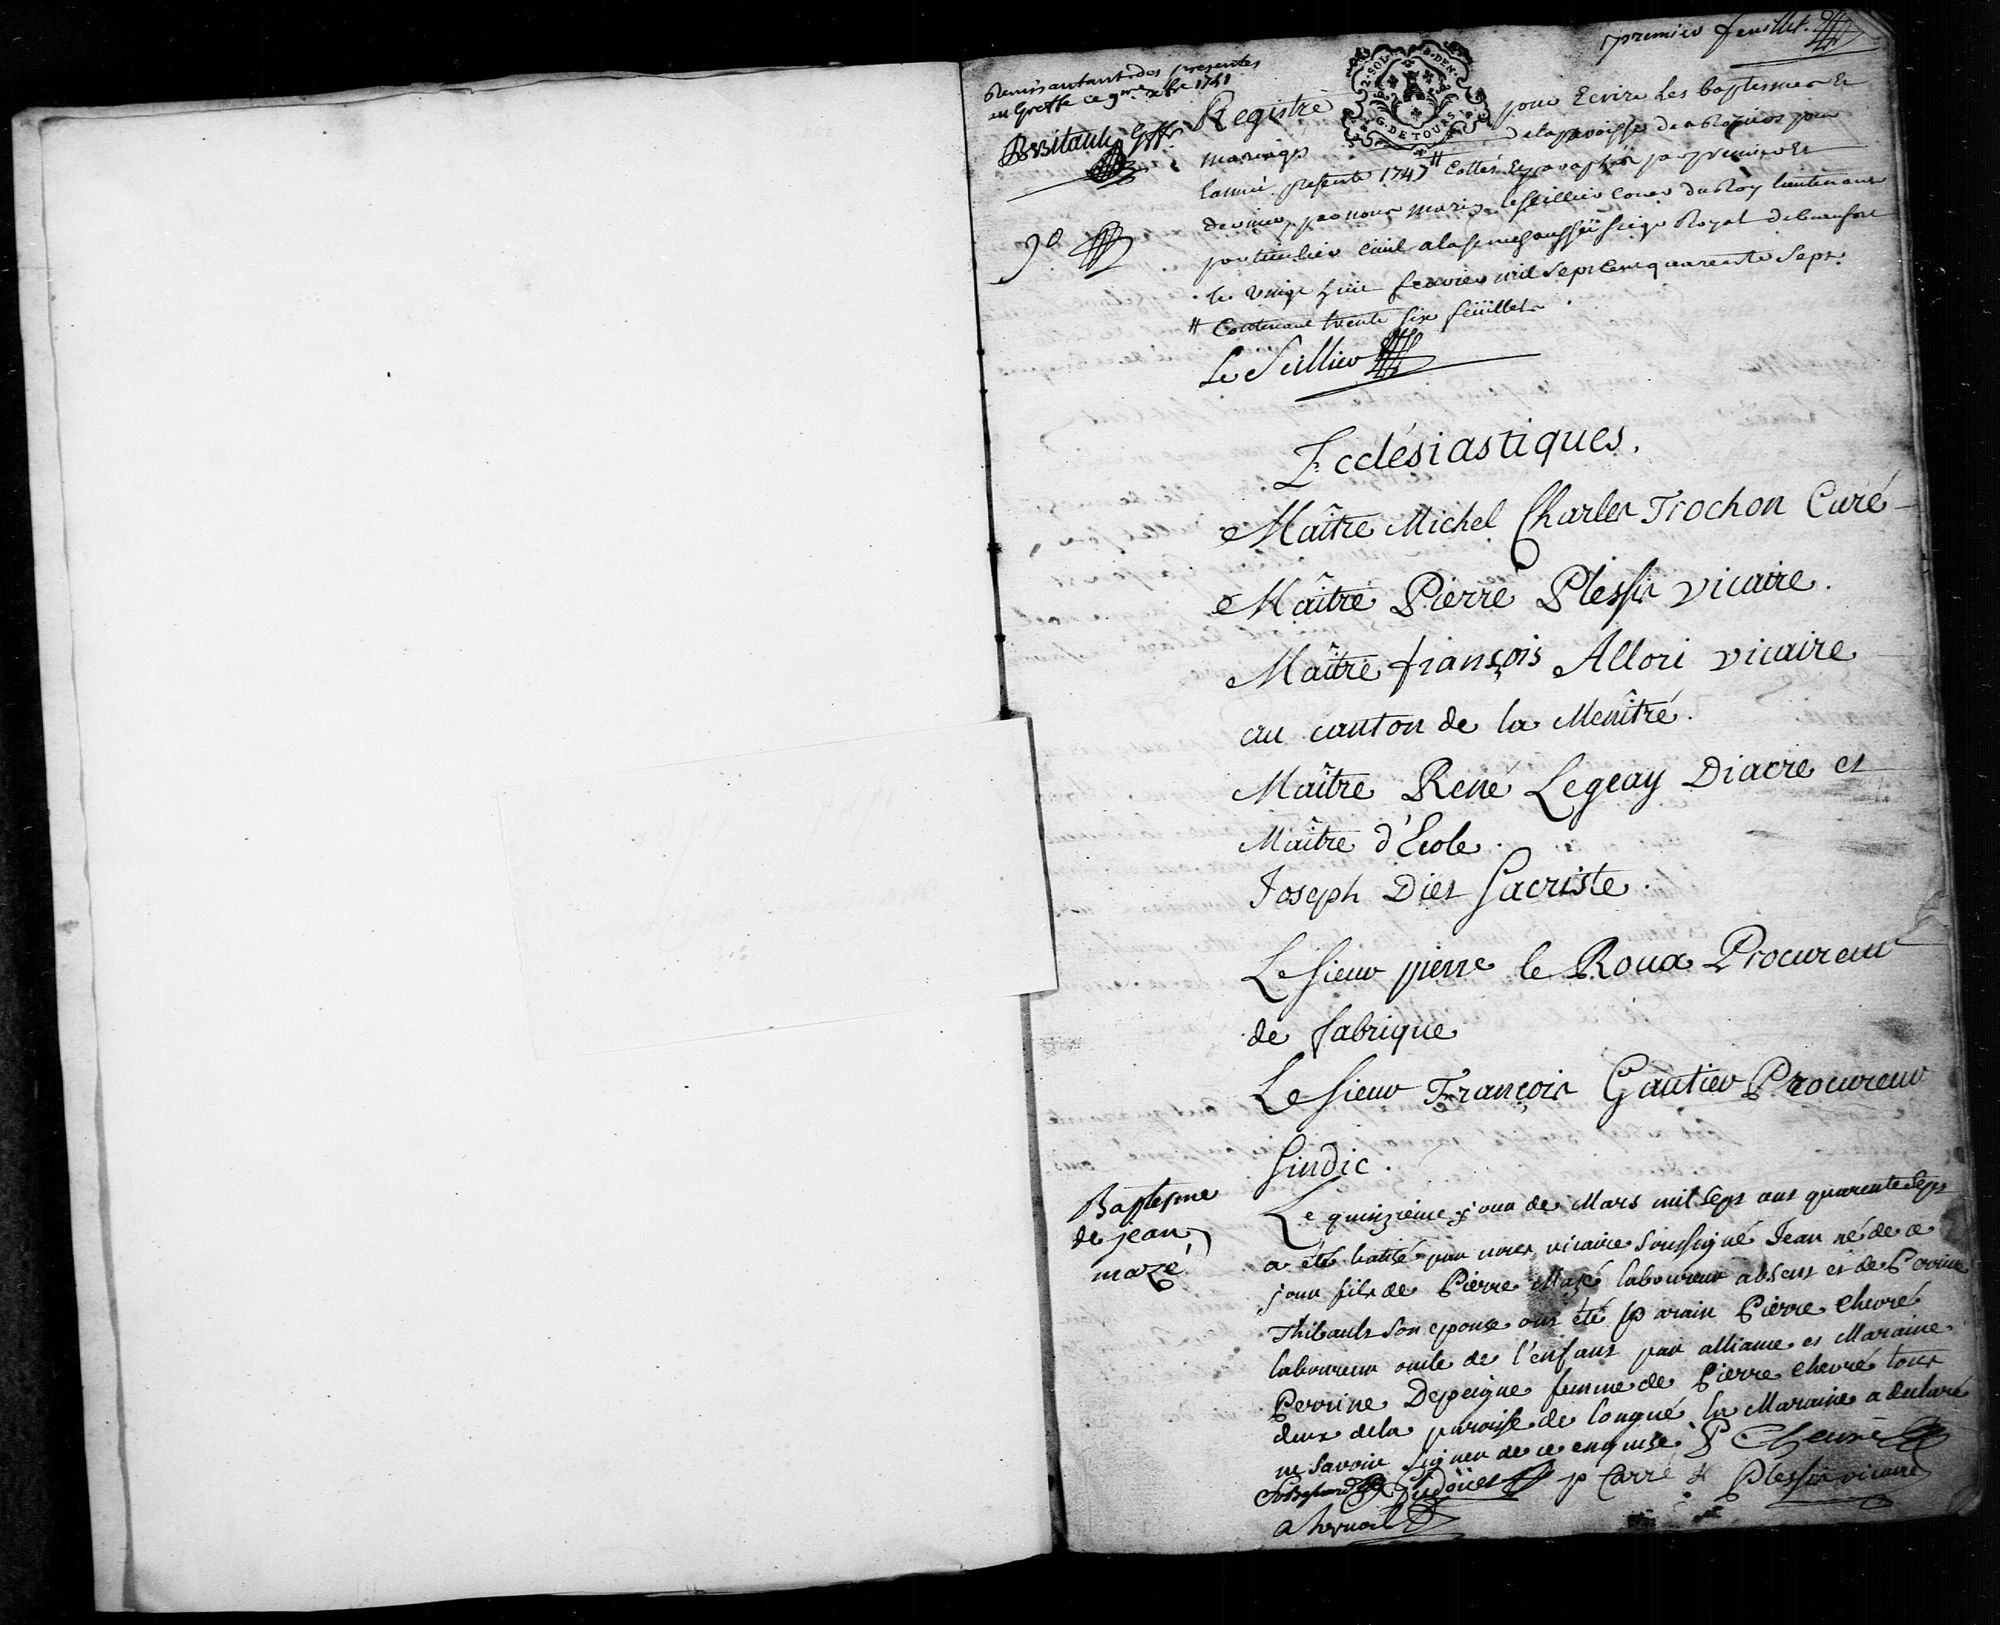 premier feuillet.
Remis autant des presentes
au Greffe ce 9me xbre 1751
Greff.
2. SOLS DEN.
G. DE TOURS
Registre pour Ecrire les baptesmes Et
mariages de la paroisse des Roziers pour
lannée presente 1747 # Cottés Et paraphés par premier Et
dernier par nous marie le seillier Coner du Roy lieutenant
particulier Civil a la senechaussée siege Royal de beaufort
le vingt huit fevrier mil sept Cent quarente Sept.
# Contenant trente six feüillets.
Le Seillier
Ecclésiastiques.
Maître Michel Charles Trochon Curé
Maître Pierre Plessis vicaire.
Maître françois Allori vicaire
au canton de la Menîtré.
Maître René Legeay Diacre et
Maître d'Ecole.
Joseph Diet Sacriste.
Le sieur pierre le Roux Procureur
de fabrique
Le sieur François Gautier Procureur
Sindic.
Baptesme
de jean
mazé
Le quinzieme jour de Mars mil sept cent quarente Sept
a été batisé par nous vicaire soussigné Jean né de ce
jour fils de Pierre Mazé laboureur absent et de Perrine
Thibault son epouse ont été parain Pierre chevré
laboureur oncle de l'enfant par alliance et Maraine
Perrine Depeigne femme de Pierre chevré tous
deux de la paroisse de longué la Maraine a declaré
ne savoir signer de ce enquise P Chevré
p Carré Plessis vicaire